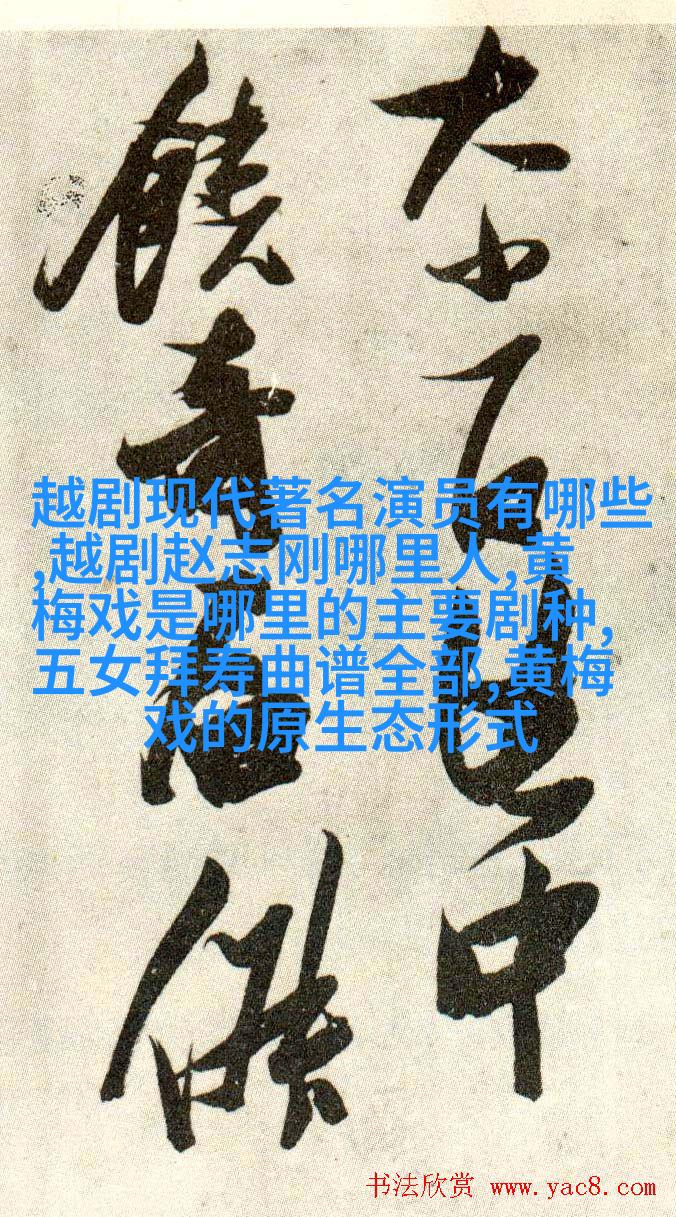 大小石中
饒奇
越剧现代著名演员有哪些
,越剧赵志刚哪里人,黄
梅戏是哪里的主要剧种,
五女拜寿曲谱全部,黄梅
戏的原生态形式
书法欣赏 www.yac8.com